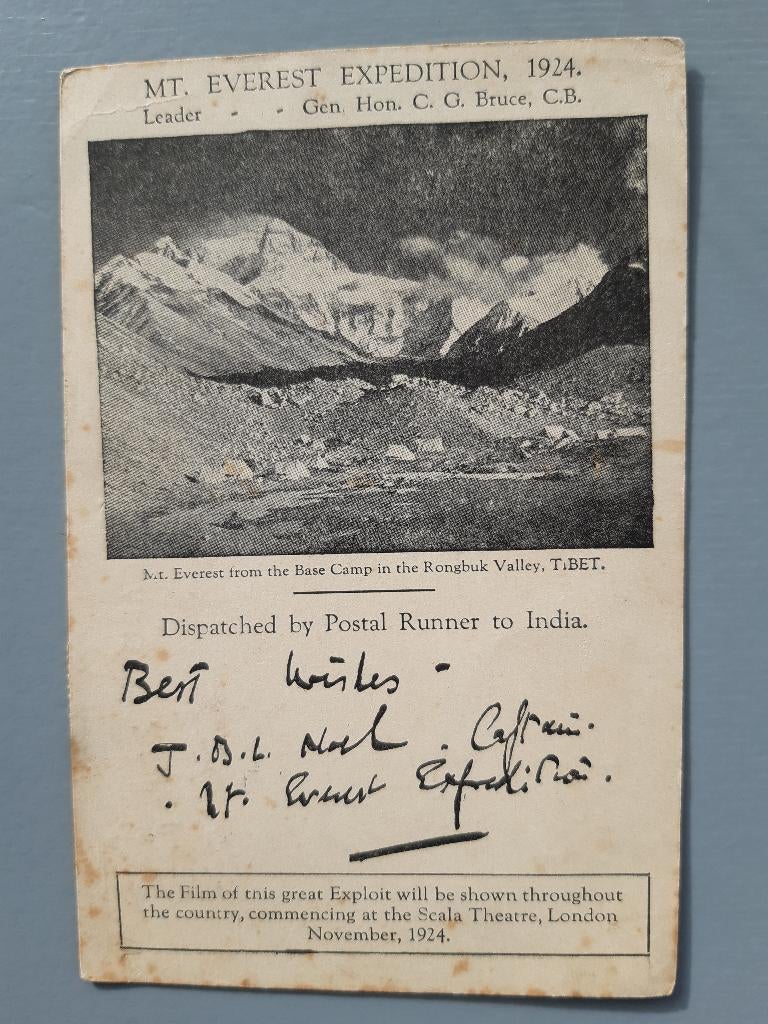 MT. EVEREST EXPEDITION, 1924.
Leader - - Gen. Hon. C. G. Bruce, C.B.
Mt. Everest from the Base Camp in the Rongbuk Valley, TIBET.
Dispatched by Postal Runner to India.
Best Wishes -
J.B.L. Noel . Captain.
. Mt. Everest Expedition.
The Film of this great Exploit will be shown throughout
the country, commencing at the Scala Theatre, London
November, 1924.